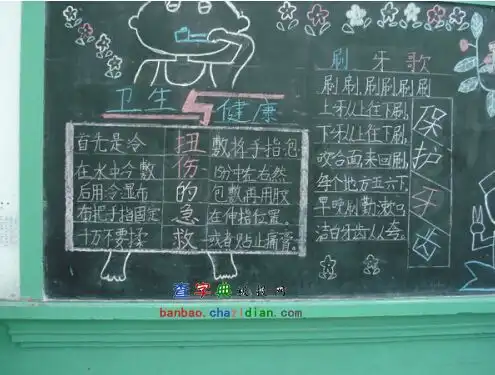 卫生 健康
首先是冷
在水中今敷
后用冷湿布
布把手指固定
千万不要揉
扭伤的急救
敷将手指包
15分中左右然
包敷再用胶
在伸指位置。
或者贴止痛膏。
刷牙歌
刷刷刷刷刷刷
上牙从上往下刷,
下牙从上往下刷,
咬合面来回刷,
每个地方五六下,
早晚刷勤漱口,
洁白牙齿人人夸。
保护牙齿
查字典板报网
banbao.chazidian.com